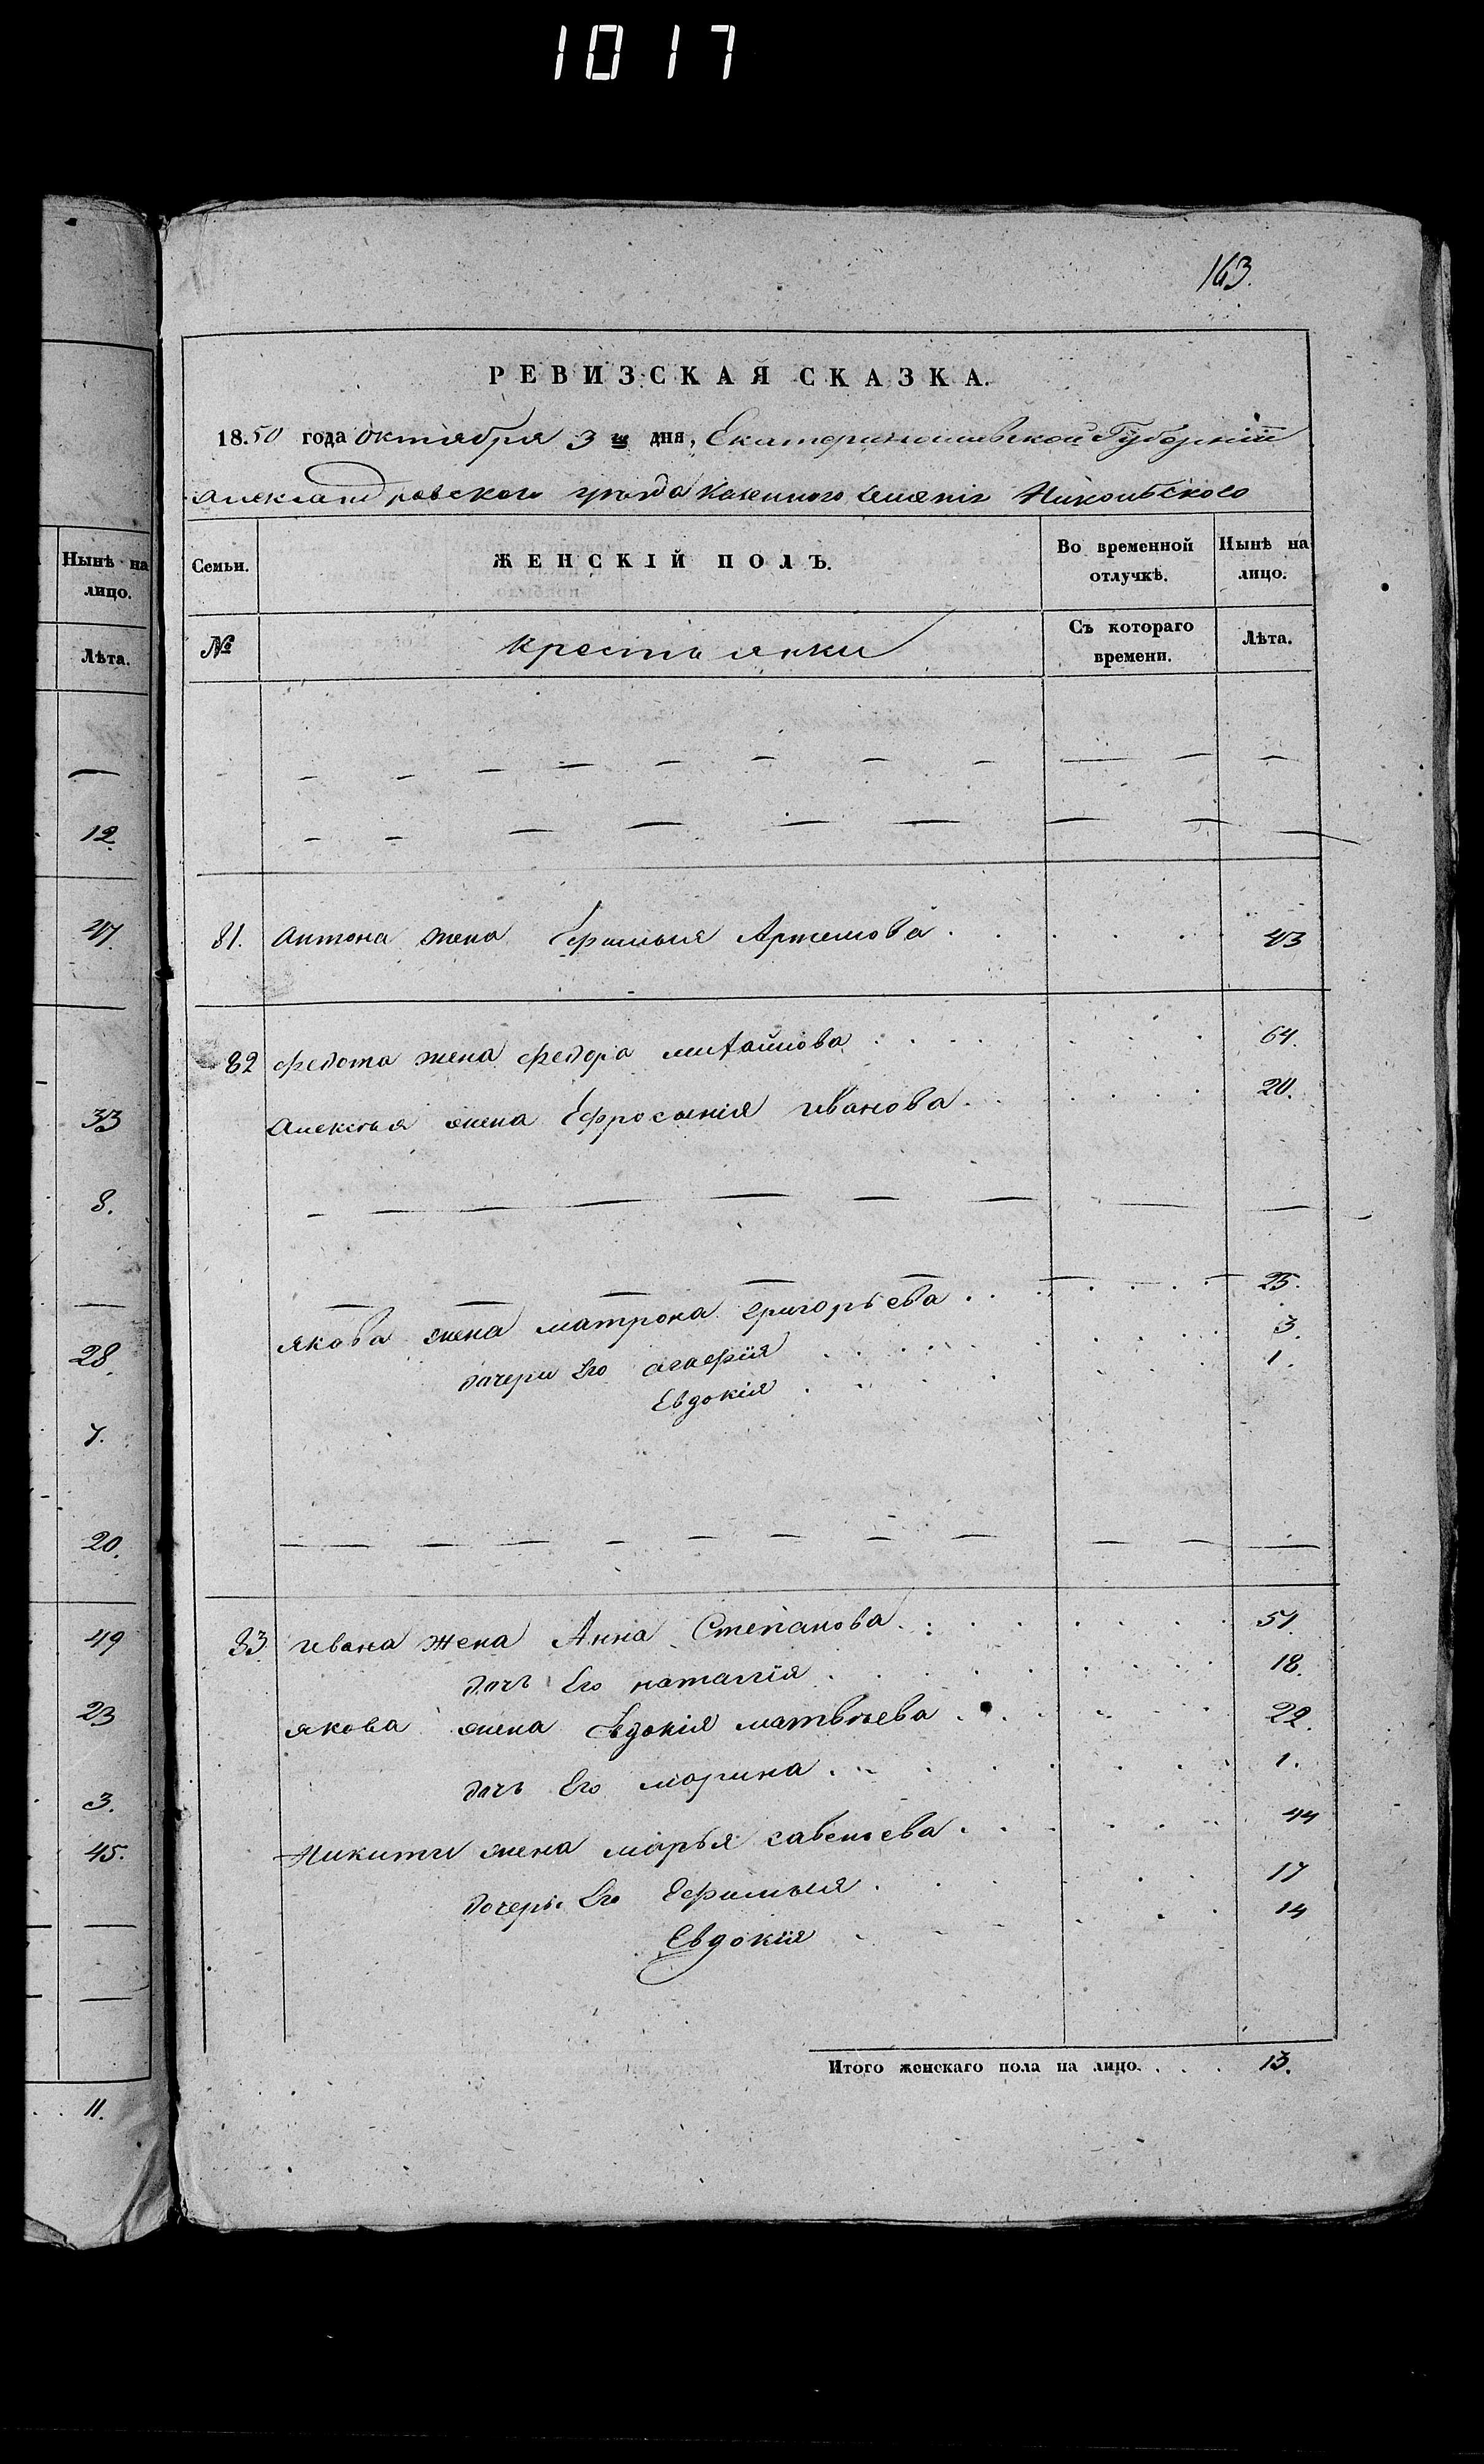 1017
163.
РЕВИЗСКАЯ СКАЗКА.
18.50 года октября 3 дня, Екатеринославской Губернии
Александровского уезда Казенного селения Никольского
Нынѣ на лицо.
Лѣта.
—
12.
47
33
8.
—
28.
7.
20.
49
23
3.
45.
—
—
11.
Семьи.
ЖЕНСКІЙ ПОЛЪ.
Во временной отлучкѣ.
Нынѣ на лицо.
№
крестьянки
Съ котораго времени.
Лѣта.
81. Антона жена Ефимия Артемова 43
82 федота жена федора михайлова 64.
Алексея жена Ефросиния иванова 20.
якова жена матрона григорьева 25.
дочери Его агафия 3.
Евдокия 1.
83 ивана жена Анна Степанова 51.
дочь Его наталия 18.
якова жена Евдокия матвѣева 22.
дочь Его марина 1.
Никиты жена марья савельева 44
дочери Его Ефимия 17
Евдокия 14
Итого женскаго пола на лицо. 13.